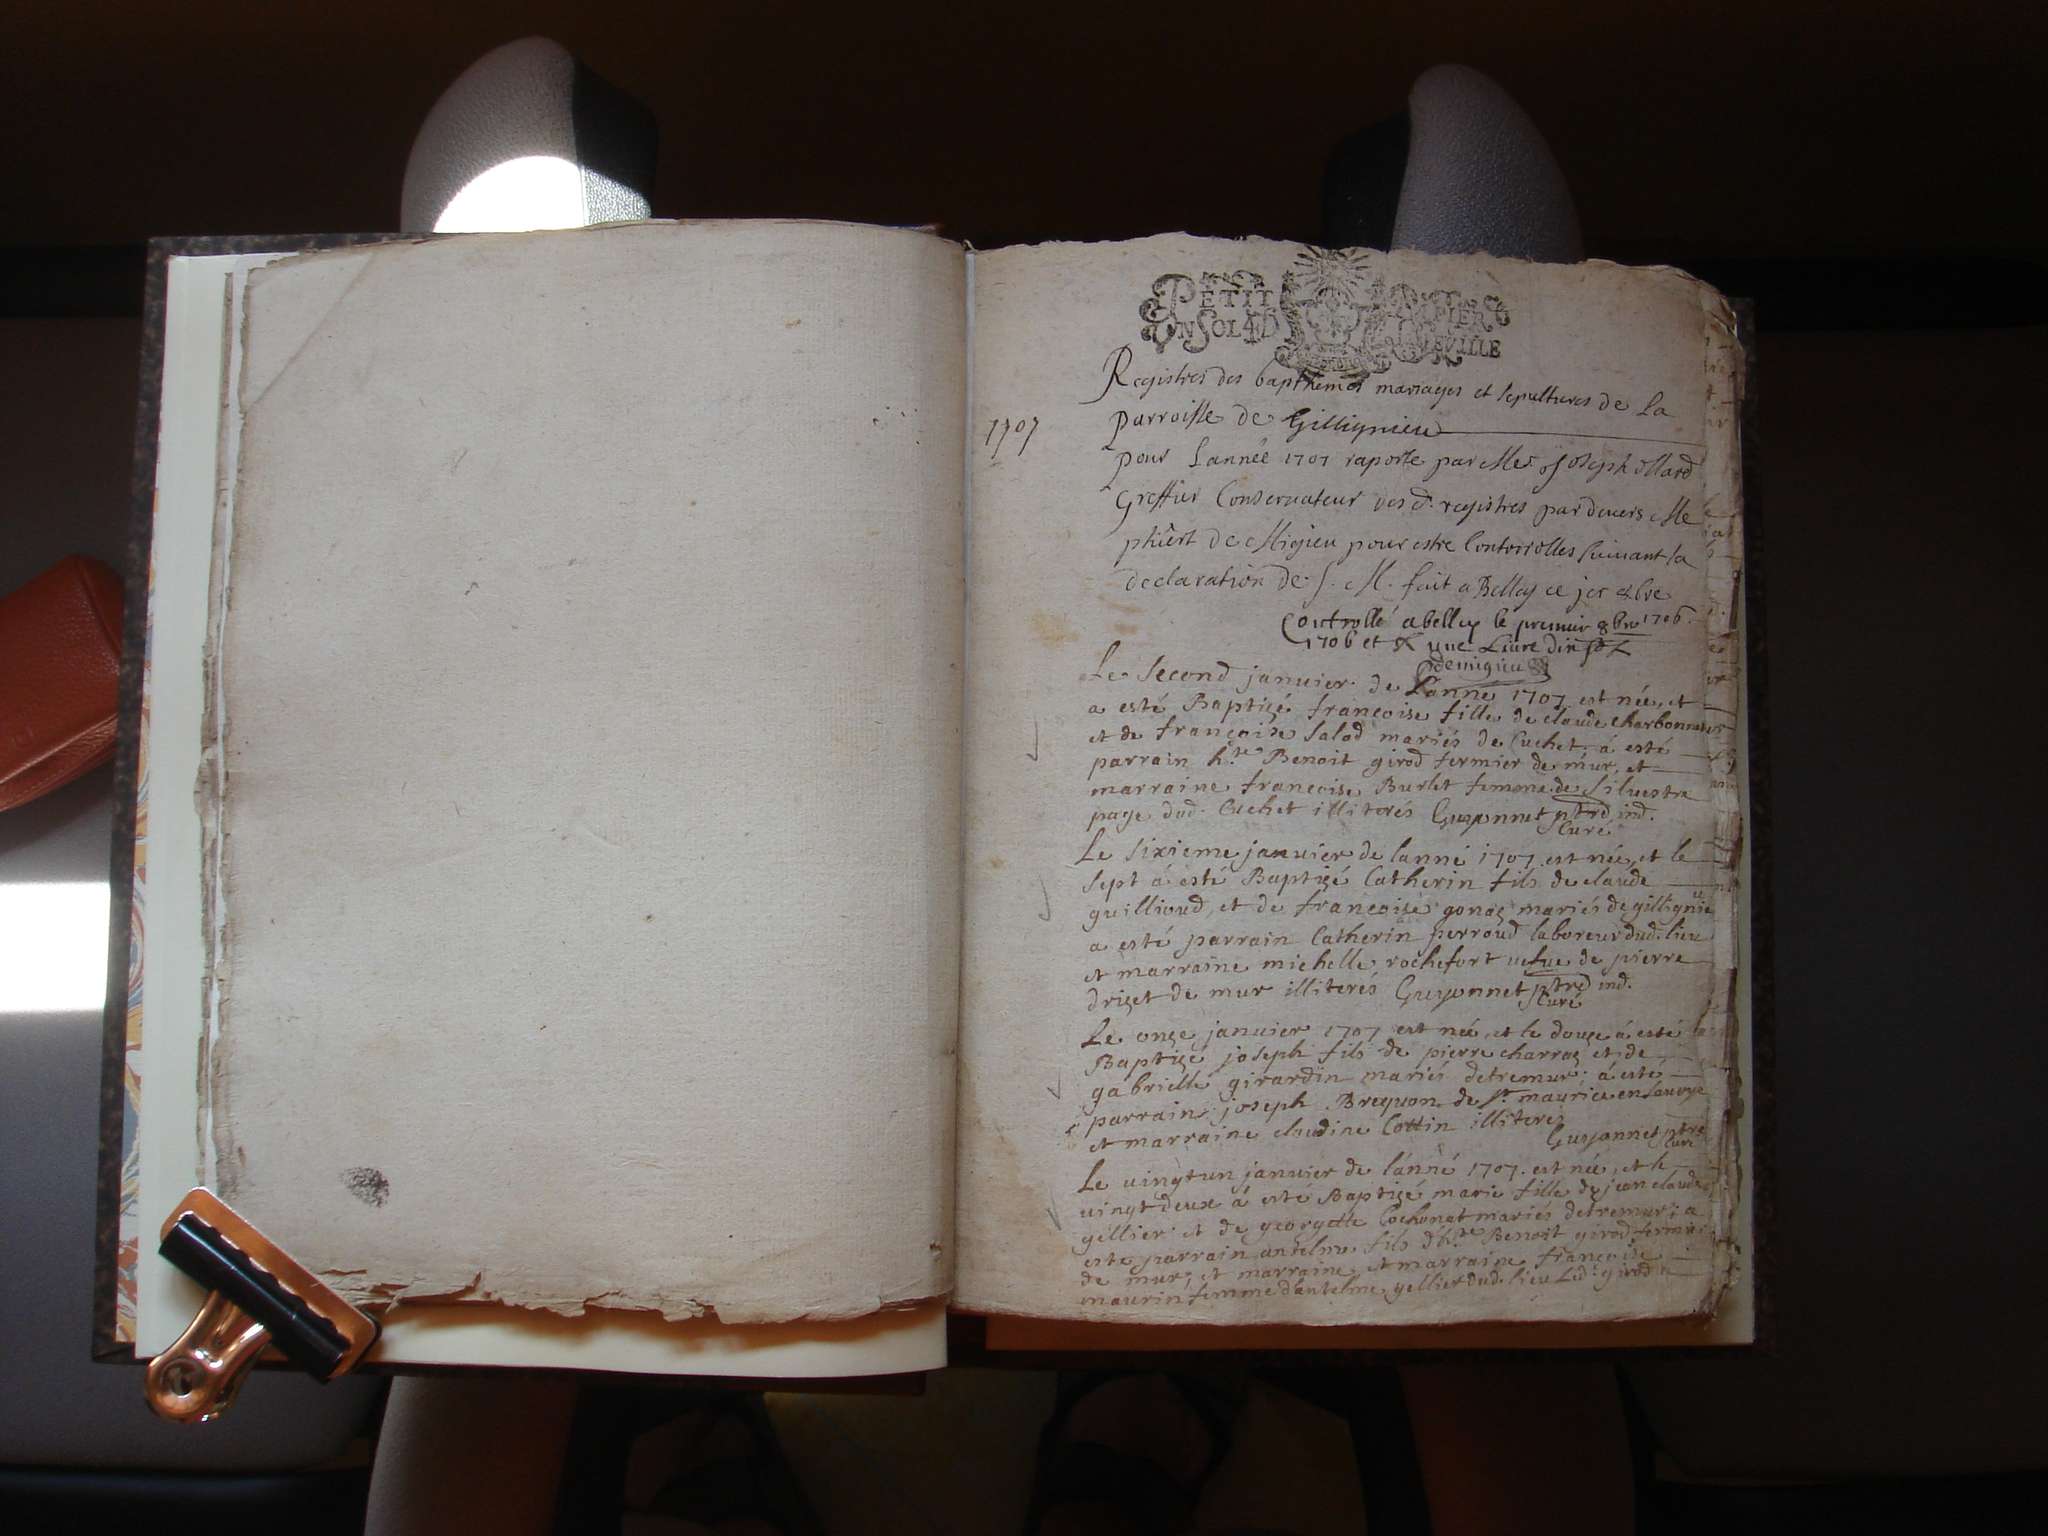 PETIT PAPIER
UN SOL 4D LA FEVILLE
Registres des bapthemes mariages et sepultures de La
1707
Parroisse de Gillignieu
pour Lannée 1707 raporte par Me Joseph Mard
Greffier Conservateur des d. registres par devers Me
de Migieu pour estre Controrolles suivant la
declaration de S. M. fait a Belley ce jer 8bre
Controllé a belley le premier 8bre 1706.
1706 et R une Livre dix sol
demigieu
Le second janvier de Lanne 1707 est née, et
a esté Baptizé francoise fille de claude charbonnier
et de françoise Salod mariés de Cuchet. á esté
parrain h.te Benoit girod fermier de mur, et
marraine francoise Burlet femme de silvestre
page dud. Cuchet illiterés Guyonnet ptre ind.
Curé
Le sixieme janvier de lanné 1707 est née, et le
sept á esté Baptizé Catherin fils de claude
guillioud, et de francoise gonaz mariés de gillignieu
a esté parrain Catherin perroud laboreur dud. lieu
et marraine michelle rochefort vefue de pierre
drizet de mur illiterés Guyonnet ptre ind.
Curé
Le onze janvier 1707 est née, et le douze á esté
Baptizé joseph fils de pierre charraz et de
gabrielle girardin mariés detremur; á esté
parrain joseph Brequon de St. maurice en savoye
et marraine claudine Cottin illiteres
Guyonnet ptre
Curé
Le vingtun janvier de lánné 1707. est née, et le
vingtdeux á esté Baptizé marie fille de jean claude
gellier et de georgette Cochonat mariés detremur; a
este parrain antelme fils d'h.te Benoit girod fermier
de mur; et marraine et marraine françoise
maurin femme dantelme gellier dud. lieu Led. girod a